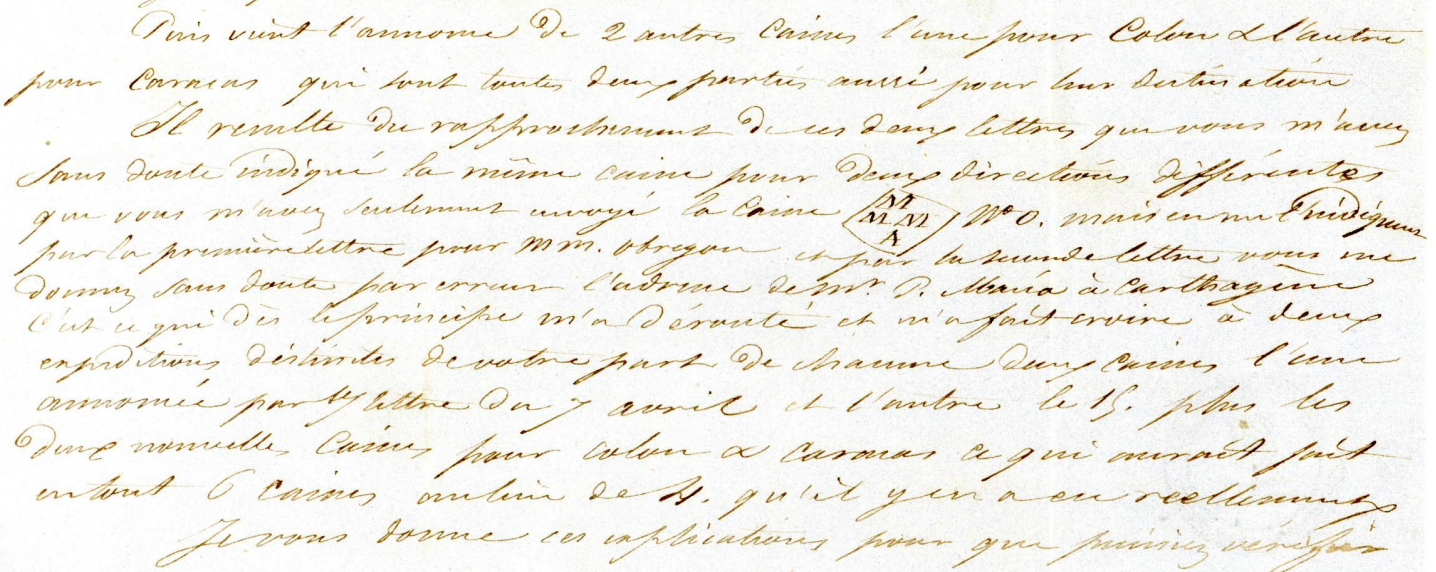 Puis vient l'annonce de 2 autres Caisses l'une pour Colon & l'autre
pour Caracas qui sont toutes deux parties aussi pour leur destination
Il resulte du rapprochement de ces deux lettres que vous m'avez
sans doute indiqué la même caisse pour deux directions différentes
que vous m'avez seulement envoyé la Caisse M M M M A N° 0. mais en me l'indiquant
par la première lettre pour MM. Obregon et par la seconde lettre vous me
donnez sans doute par erreur l'adresse de Mr. P. Maria à Carthagène
C'est ce qui dès le principe m'a dérouté et m'a fait croire à deux
expéditions distinctes de votre part de chacune deux caisses l'une
annoncée par lettre du 7 avril et l'autre le 15. plus les
deux nouvelles Caisses pour colon & caracas ce qui aurait fait
en tout 6 caisses au lieu de 4. qu'il y en a eu reellement
Je vous donne ces explications pour que puissiez vérifier